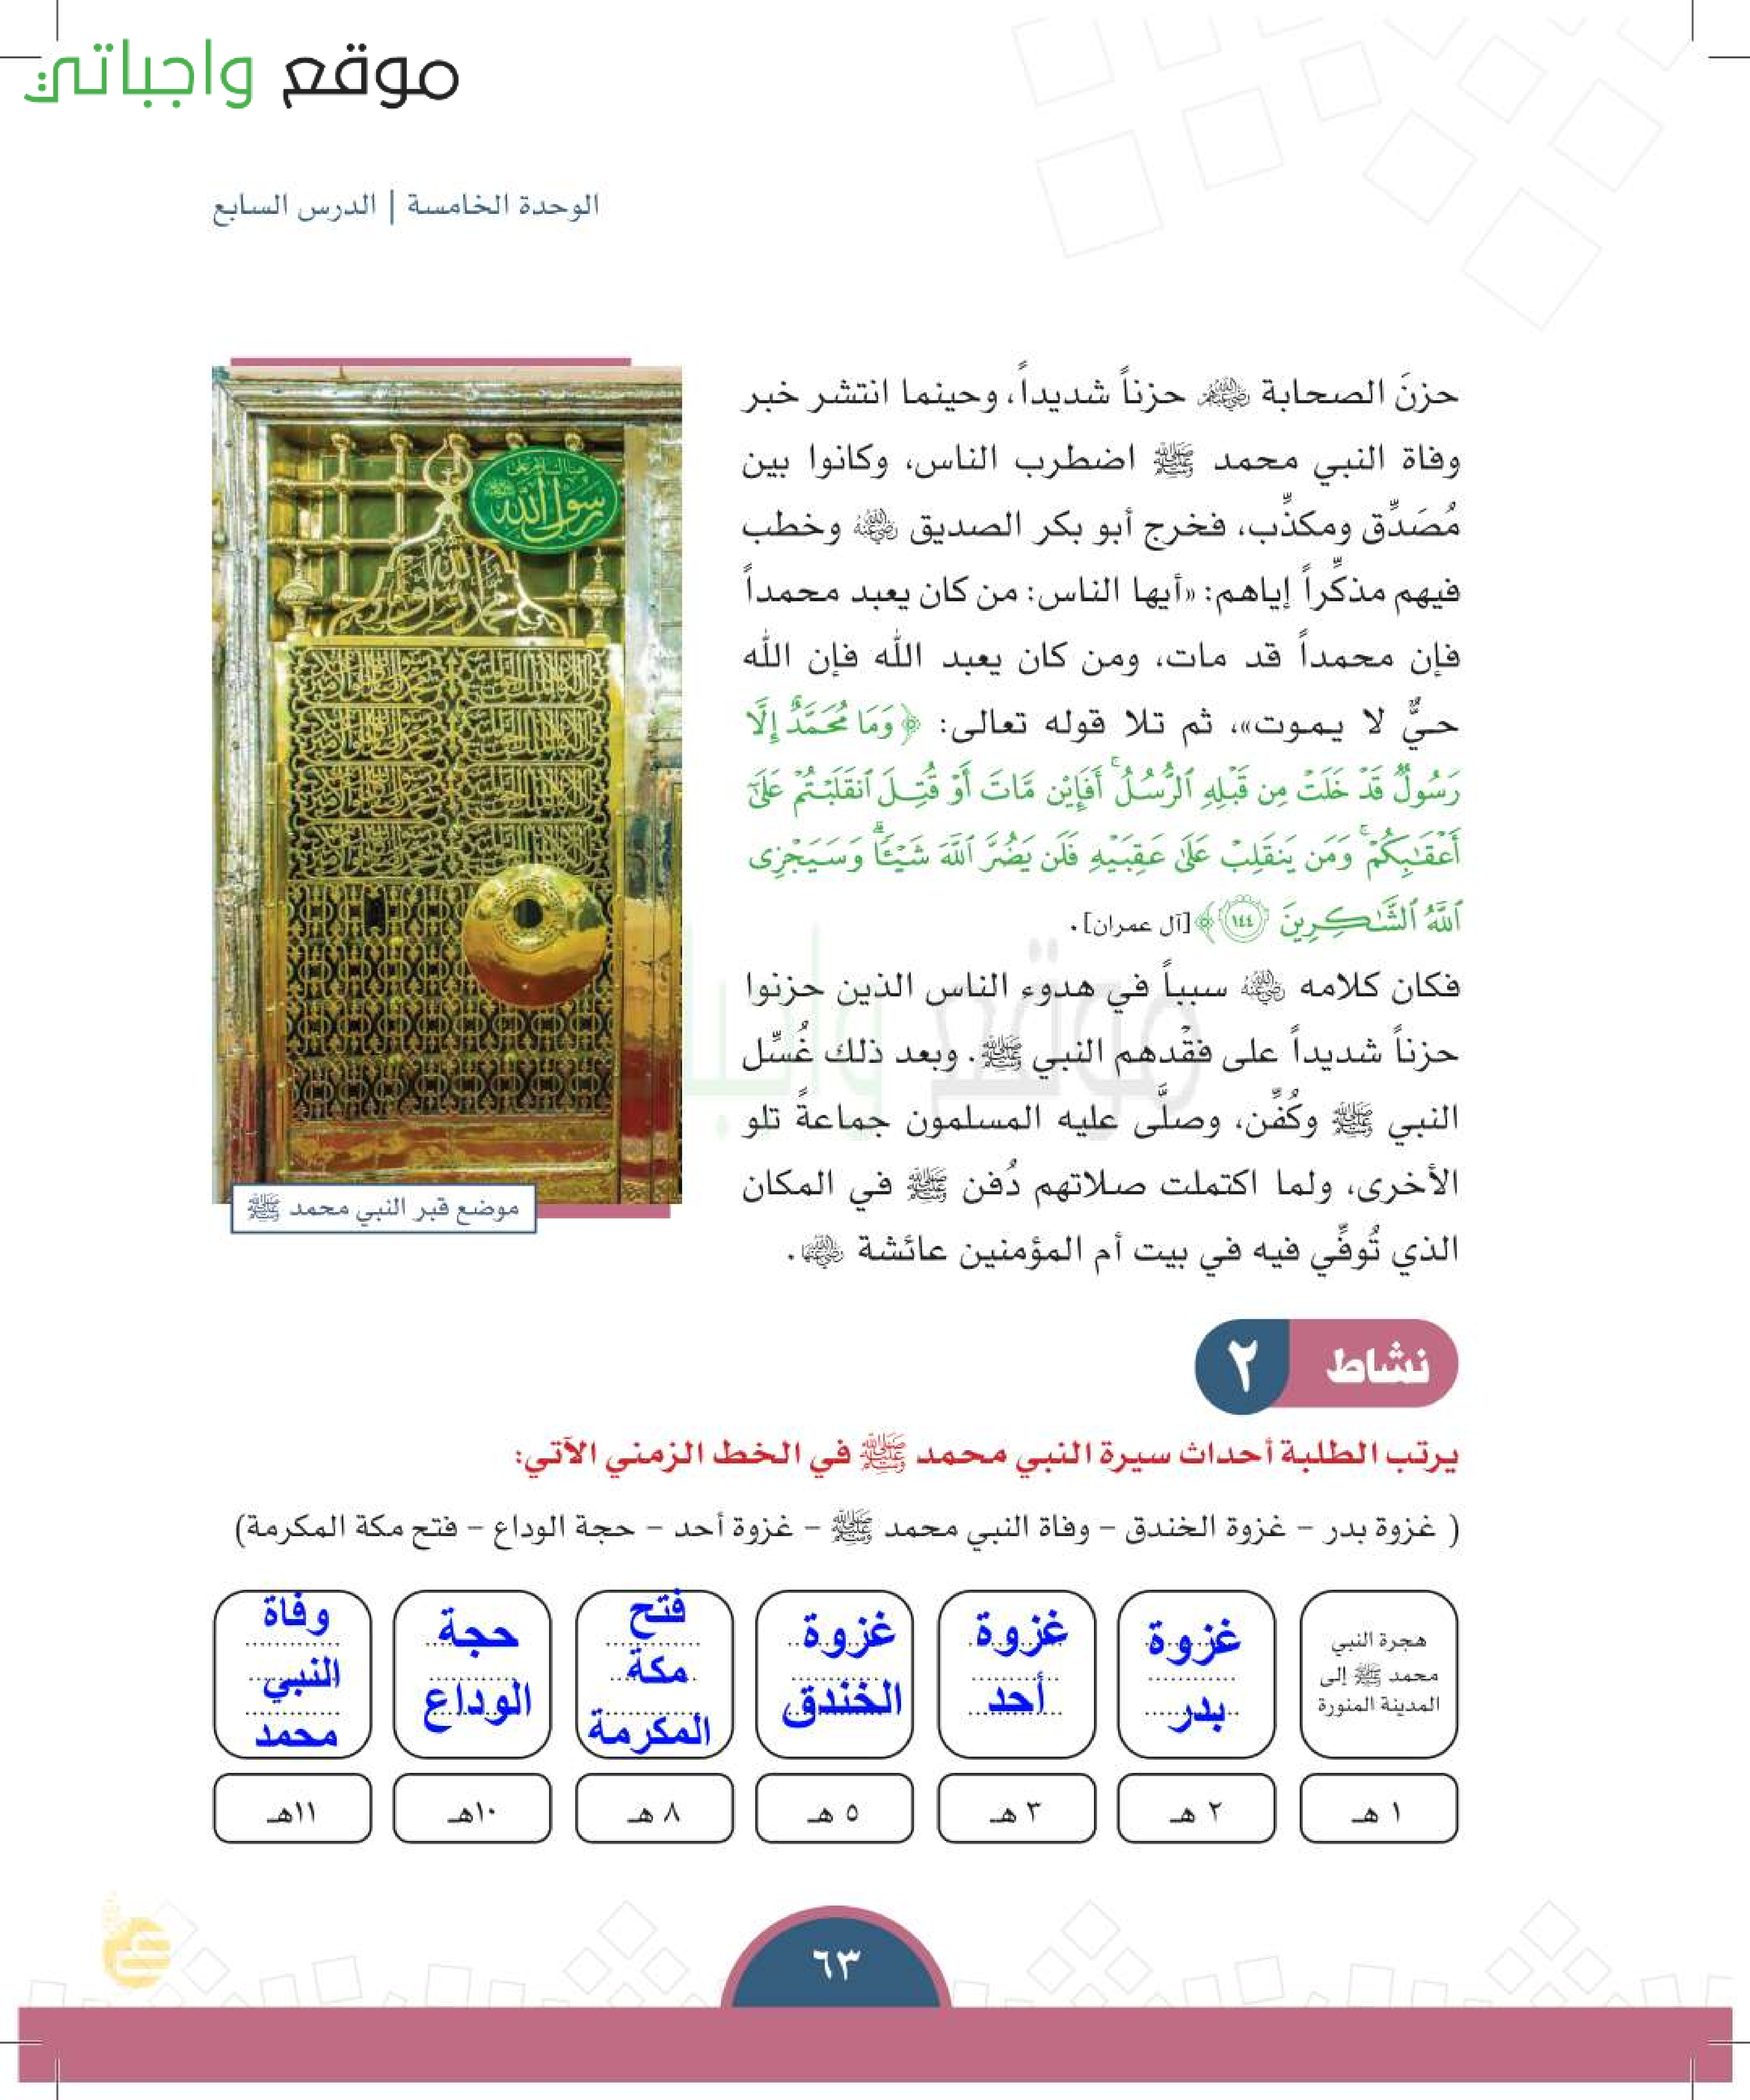 موقع واجباتي
الوحدة الخامسة | الدرس السابع
حزنَ الصحابة رضي الله عنهم حزناً شديداً، وحينما انتشر خبر
وفاة النبي محمد ﷺ اضطرب الناس، وكانوا بين
مُصَدِّق ومكذِّب، فخرج أبو بكر الصديق رضي الله عنه وخطب
فيهم مذكِّراً إياهم: «أيها الناس: من كان يعبد محمداً
فإن محمداً قد مات، ومن كان يعبد الله فإن الله
حيٌّ لا يموت»، ثم تلا قوله تعالى: ﴿وَمَا مُحَمَّدٌ إِلَّا
رَسُولٌ قَدْ خَلَتْ مِن قَبْلِهِ ٱلرُّسُلُ ۚ أَفَإِي۟ن مَّاتَ أَوْ قُتِلَ ٱنقَلَبْتُمْ عَلَىٰٓ
أَعْقَٰبِكُمْ ۚ وَمَن يَنقَلِبْ عَلَىٰ عَقِبَيْهِ فَلَن يَضُرَّ ٱللَّهَ شَيْـًٔا ۗ وَسَيَجْزِى
ٱللَّهُ ٱلشَّٰكِرِينَ ١٤٤﴾ [آل عمران].
فكان كلامه رضي الله عنه سبباً في هدوء الناس الذين حزنوا
حزناً شديداً على فقْدهم النبي ﷺ. وبعد ذلك غُسِّل
النبي ﷺ وكُفِّن، وصلَّى عليه المسلمون جماعةً تلو
الأخرى، ولما اكتملت صلاتهم دُفن ﷺ في المكان
الذي تُوفِّي فيه في بيت أم المؤمنين عائشة رضي الله عنها.
رسول الله
موضع قبر النبي محمد ﷺ
نشاط ٢
يرتب الطلبة أحداث سيرة النبي محمد ﷺ في الخط الزمني الآتي:
( غزوة بدر – غزوة الخندق – وفاة النبي محمد ﷺ – غزوة أحد – حجة الوداع – فتح مكة المكرمة)
هجرة النبي
محمد ﷺ إلى
المدينة المنورة
غزوة
بدر
غزوة
أحد
غزوة
الخندق
فتح
مكة
المكرمة
حجة
الوداع
وفاة
النبي
محمد
١ هـ
٢ هـ
٣ هـ
٥ هـ
٨ هـ
١٠هـ
١١هـ
٦٣